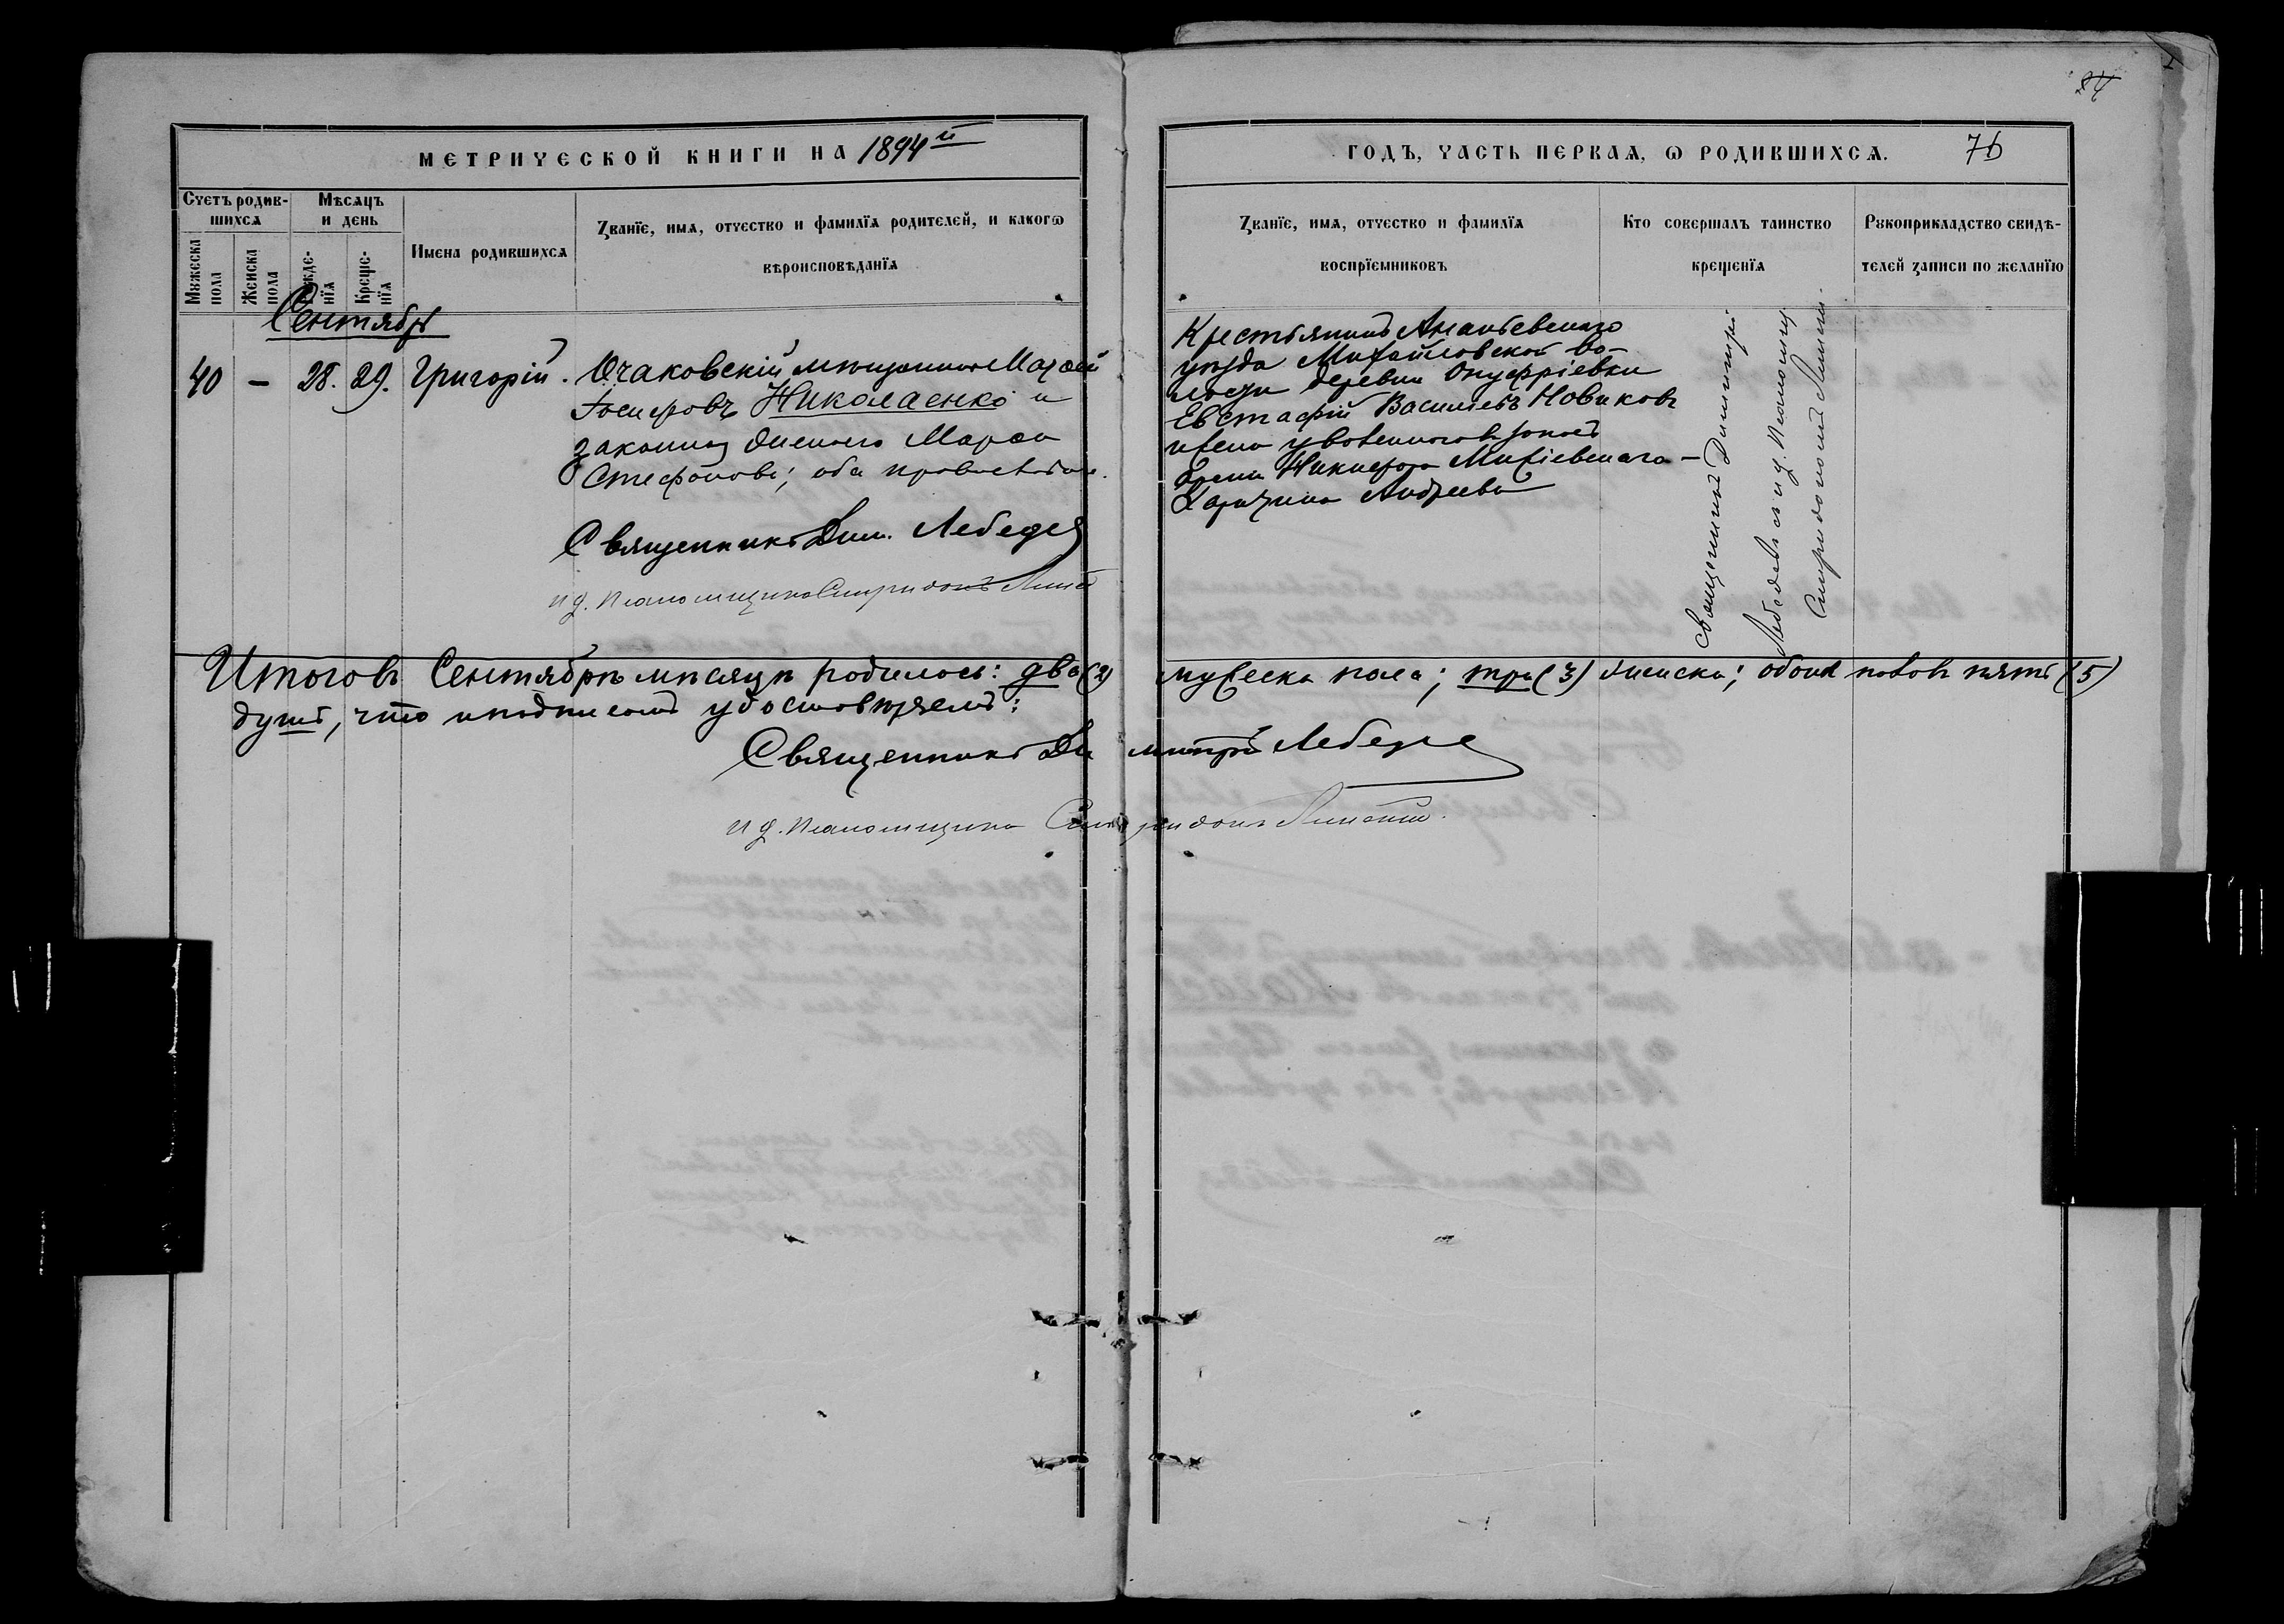 84
МЕТРИЧЕСКОЙ КНИГИ НА 1894й
ГОДЪ, ЧАСТЬ ПЕРВАѦ, Ѡ РОДИВШИХСѦ. 76
Счетъ родив-
шихсѧ
Мѣсѧцъ
и день
Мужеска
пола
Женска
пола
Рожде-
нїѧ
Креще-
нїѧ
Имена родившихсѧ
Званїе, имѧ, отчество и фамилїѧ родителей, и какогѡ
вѣроисповѣданїѧ
Званїе, имѧ, отчество и фамилїѧ
воспрїемниковъ
Кто совершалъ таинство
крещенїѧ
Рукоприкладство свидѣ-
телей записи по желанїю
Сентябрь
40 — 28. 29. Григорій.
Очаковскій мѣщанинъ
Іосифовъ Николаенко и
законная
Стефанова; оба православные.
Священникъ Дим. Лебедев
и д. псаломщика Спиридонъ
Крестьянинъ Ананьевскаго
уѣзда Михайловской во-
лости деревни Онуфріевки
Евстафій Васильевъ Новиковъ
и жена уволеннаго въ запасъ
арміи Никифора
Андреева
Священникъ Димитрій
Лебедевъ с и. д. псаломщ.
Спиридономъ
Итого въ Сентябрѣ мѣсяцѣ родилось: два (2) мужеска пола; три (3) женска; обоихъ половъ пять (5)
душъ, что и подписомъ удостовѣряемъ:
Священникъ Димитрій Лебедев
и д. псаломщика Спиридонъ